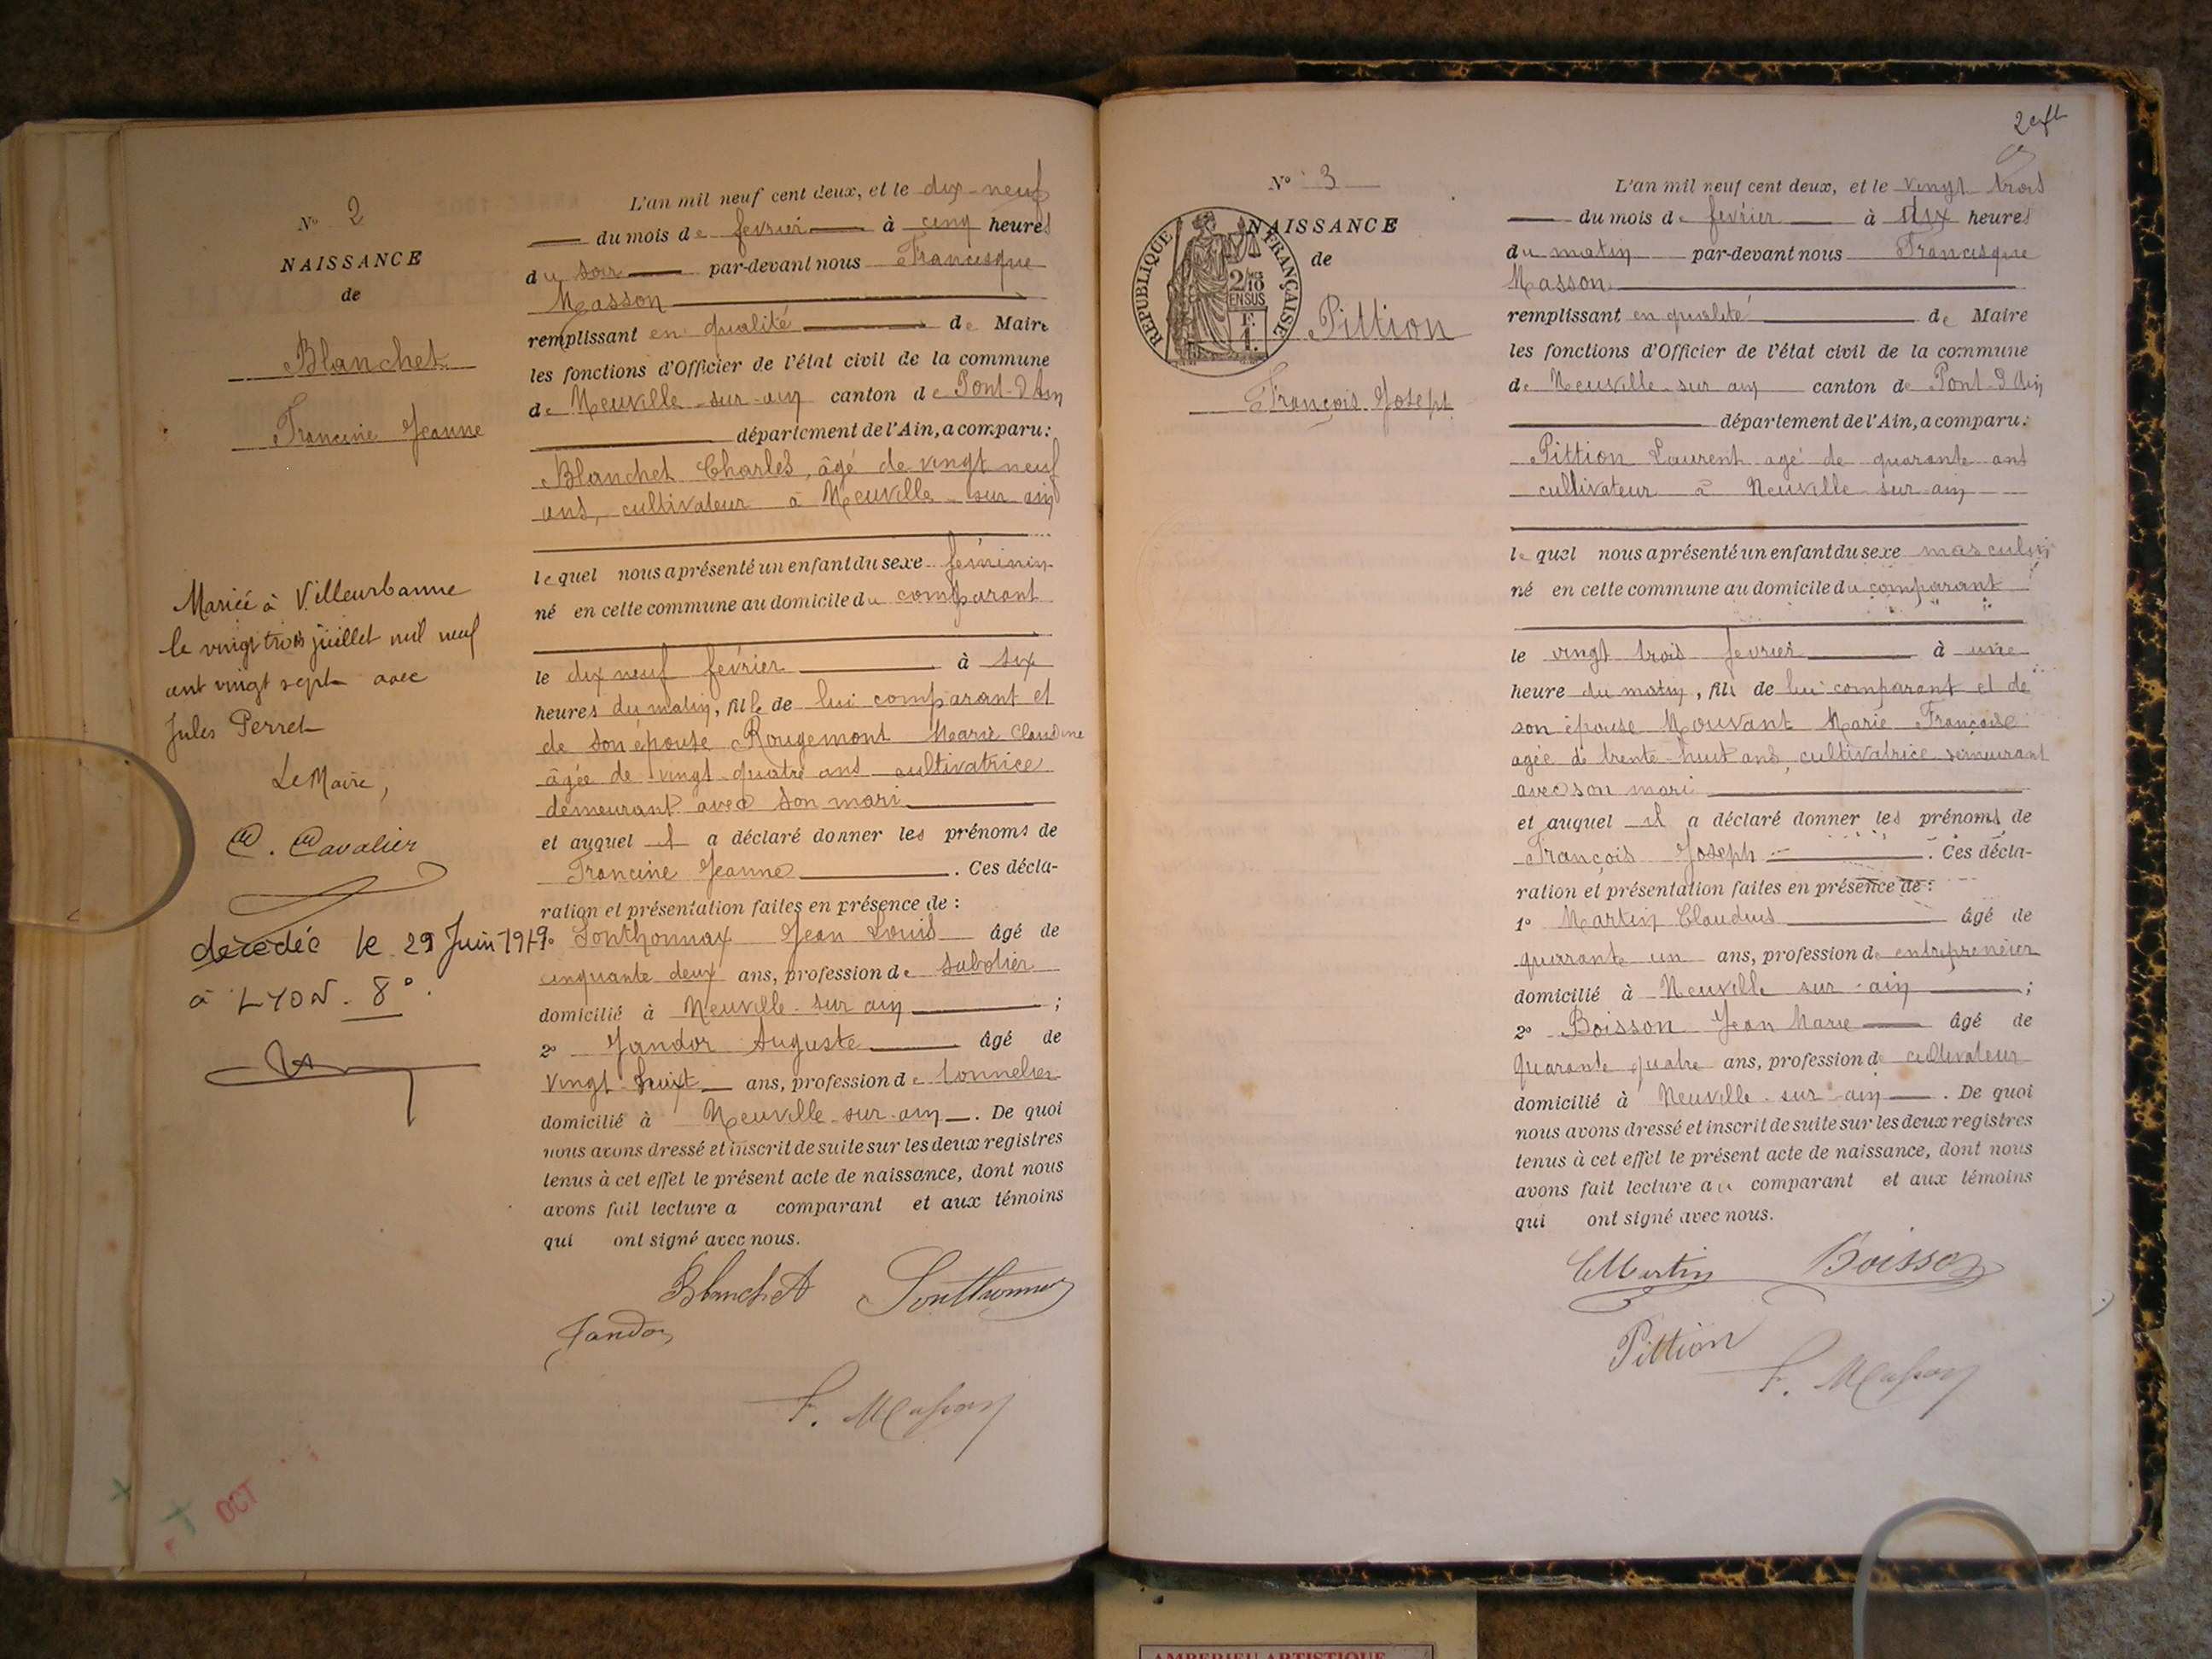 N° 2
NAISSANCE
de
Blanchet
Francine Jeanne
Mariée à Villeurbanne
le vingt trois juillet mil neuf
cent vingt sept avec
Jules Perret
Le Maire,
C. Cavalier
décédée le 29 Juin 1979
à LYON - 8°.
L'an mil neuf cent deux, et le dix-neuf
du mois de fevrier à cinq heures
du soir par-devant nous Francisque
Masson
remplissant en qualité de Maire
les fonctions d'Officier de l'état civil de la commune
de Neuville-sur-ain canton de Pont-d'Ain
département de l'Ain, a comparu:
Blanchet Charles, âgé de vingt neuf
ans, cultivateur à Neuville-sur ain
lequel nous a présenté un enfant du sexe féminin
né en cette commune au domicile du comparant
le dix neuf fevrier à six
heures du matin, fille de lui comparant et
de son épouse Rougemont Marie Claudine
âgée de vingt-quatre ans cultivatrice
demeurant avec son mari
et auquel il a déclaré donner les prénoms de
Francine Jeanne. Ces décla-
ration et présentation faites en présence de :
1° Sonthonnax Jean Louis âgé de
cinquante deux ans, profession de sabotier
domicilié à Neuville-sur ain ;
2° Jandor Auguste âgé de
vingt-huit ans, profession de tonnelier
domicilié à Neuville-sur-ain. De quoi
nous avons dressé et inscrit de suite sur les deux registres
tenus à cet effet le présent acte de naissance, dont nous
avons fait lecture a comparant et aux témoins
qui ont signé avec nous.
Blanchet Sonthonnax
Jandor
F. Masson
OCT
2
N° 3
NAISSANCE
de
RÉPUBLIQUE FRANÇAISE
2/10
EN SUS
Pittion
François Joseph
L'an mil neuf cent deux, et le vingt trois
du mois de fevrier à dix heures
du matin par-devant nous Francisque
Masson
remplissant en qualité de Maire
les fonctions d'Officier de l'état civil de la commune
de Neuville-sur ain canton de Pont-d'Ain
département de l'Ain, a comparu:
Pittion Laurent agé de quarante ans
cultivateur à Neuville-sur-ain
lequel nous a présenté un enfant du sexe masculin
né en cette commune au domicile du comparant
le vingt trois fevrier à une
heure du matin, fils de lui comparant et de
son épouse Mouvant Marie Françoise
agée de trente-huit ans, cultivatrice demeurant
avec son mari
et auquel il a déclaré donner les prénoms de
François Joseph. Ces décla-
ration et présentation faites en présence de :
1° Martin Claudius âgé de
quarante un ans, profession de entrepreneur
domicilié à Neuville sur-ain ;
2° Boisson Jean Marie âgé de
quarante quatre ans, profession de cultivateur
domicilié à Neuville-sur-ain. De quoi
nous avons dressé et inscrit de suite sur les deux registres
tenus à cet effet le présent acte de naissance, dont nous
avons fait lecture au comparant et aux témoins
qui ont signé avec nous.
C Martin Boisson
Pittion
F. Masson
AMBERIEU ARTISTIQUE